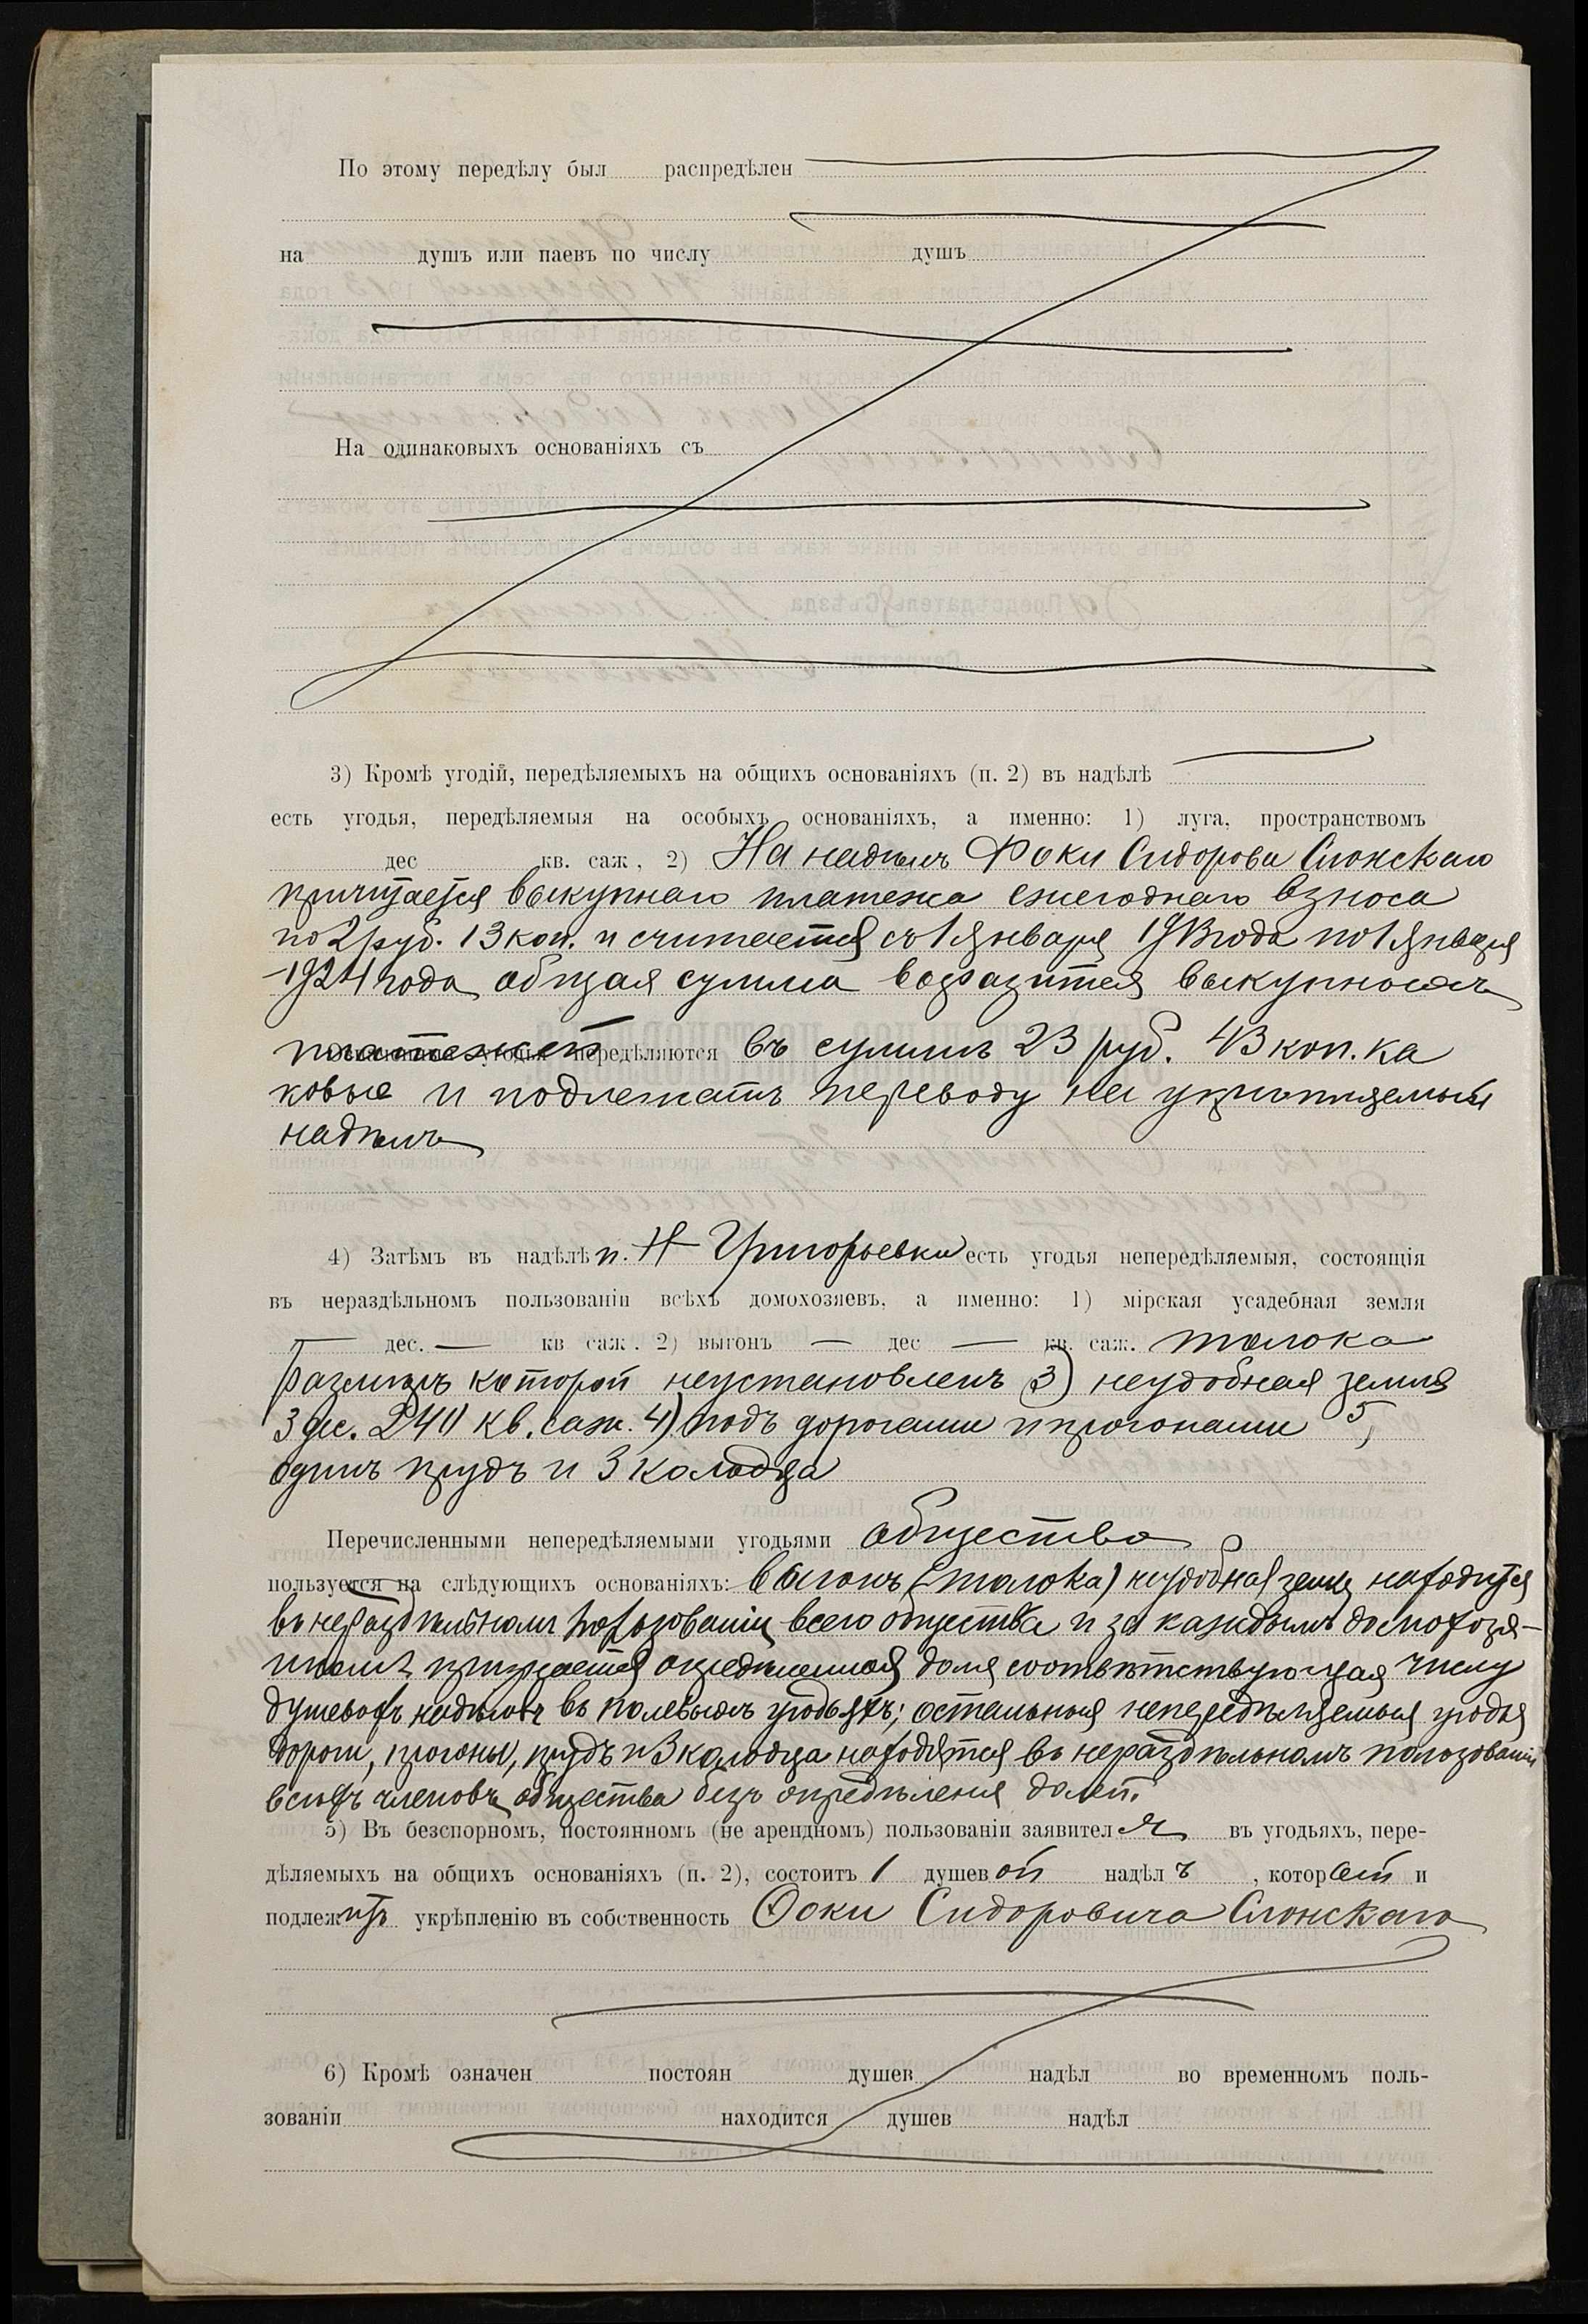 По этому передѣлу был распредѣлен
на душъ или паевъ по числу душъ
На одинаковыхъ основаніяхъ съ
3) Кромѣ угодій, передѣляемыхъ на общихъ основаніяхъ (п. 2) въ надѣлѣ
есть угодья, передѣляемыя на особыхъ основаніяхъ, а именно: 1) луга, пространствомъ
дес кв. саж, 2) На надѣлъ Фоки Сидорова Слонскаго
причитается выкупнаго платежа ежегоднаго взноса
по 2 руб. 13 коп. и считается съ 1 Января 1913 года по 1 Января
1924 года общая сумма выкупныхъ
платежей передѣляются въ суммѣ 23 руб. 43 коп. ка
ковые и подлежатъ переводу на укрѣпляемый
надѣлъ
4) Затѣмъ въ надѣлѣ п. Н Григорьевки есть угодья непередѣляемыя, состоящія
въ нераздѣльномъ пользованіи всѣхъ домохозяевъ, а именно: 1) мірская усадебная земля
— дес. — кв саж. 2) выгонъ — дес — кв. саж. толока
размѣръ которой неустановленъ 3) неудобная земля
3 дес. 240 кв. саж. 4) подъ дорогами и прогонами 5)
одинъ прудъ и 3 колодца
Перечисленными непередѣляемыми угодьями общество
пользуется на слѣдующихъ основаніяхъ: выгонъ (толока) неудобная земля находится
въ нераздѣльномъ пользованіи всего общества и за каждымъ домохозя-
иномъ признается опредѣленная доля соотвѣтствующая числу
душевыхъ надѣловъ въ полевыхъ угодьяхъ; остальныя непередѣляемыя угодья
дороги, прогоны, прудъ и 3 колодца находятся въ нераздѣльномъ пользованіи
всѣхъ членовъ общества безъ опредѣленія долей.
5) Въ безспорномъ, постоянномъ (не арендномъ) пользованіи заявителя въ угодьяхъ, пере-
дѣляемыхъ на общихъ основаніяхъ (п. 2), состоитъ 1 душевой надѣлъ, который и
подлежитъ укрѣпленію въ собственность Фоки Сидоровича Слонскаго
6) Кромѣ означен постоян душев надѣл во временномъ поль-
зованіи находится душев надѣл